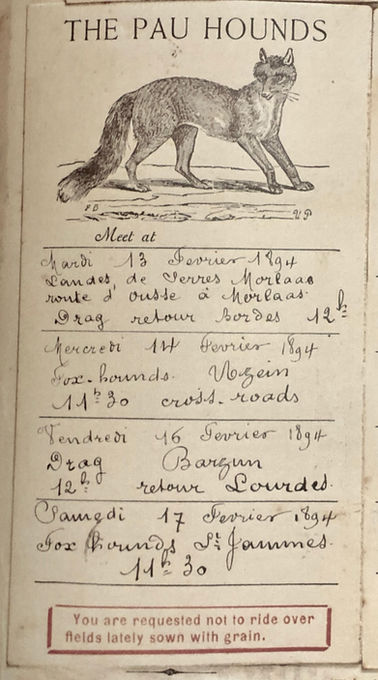 THE PAU HOUNDS
F B
U P
Meet at
Mardi 13 Fevrier 1894
Landes de Serres Morlaas
route d'ousse à Morlaas.
Drag retour Bordes 12h
Mercredi 14 Fevrier 1894
Fox-hounds. Uzein
11h 30 cross-roads
Vendredi 16 Fevrier 1894
Drag Barzun
12h retour Lourdes.
Samedi 17 Fevrier 1894
Fox hounds St Jammes.
11h 30
You are requested not to ride over
fields lately sown with grain.